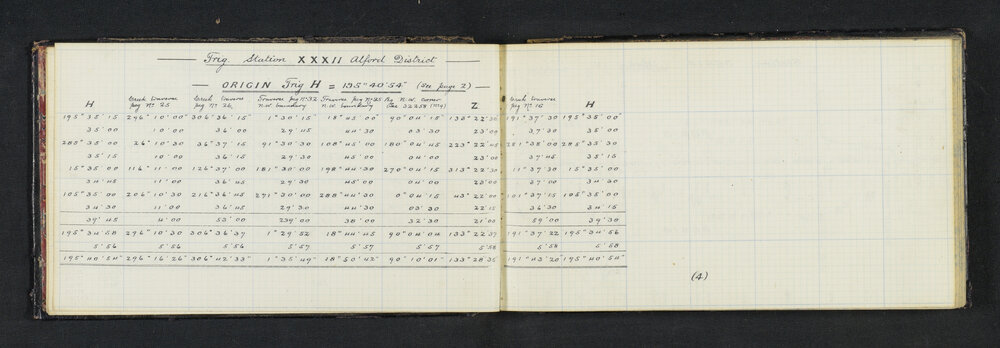 Trig. Station XXXII Alford District
ORIGIN Trig H = 195°40'54" (See page 2)
H Creek traverse peg No 25 Creek traverse peg No 26 Traverse peg No 32 N.W. boundary Traverse peg No 25 N.W. boundary N.W. corner Z Creek traverse peg No 16 H
195° 35' 15 296° 10' 00" 306° 36' 15" 1° 30' 15" 18° 45' 00" 90° 04' 15" 133° 22' 30 191° 37' 30 195° 35' 00"
35' 00 10' 00 36' 00 29' 45 44' 30 03' 30 23' 00 37' 30 35' 00
285° 35' 00 26° 10' 30 36° 37' 15 91° 30' 30 108° 45' 00 180° 04' 45 223° 22' 45 281° 38' 00 285° 35' 30
35' 15 10' 00 36' 15 29' 30 45' 00 04' 00 23' 00 37' 45 35' 15
15° 35' 00 116° 11' 00 126° 37' 00 181° 30' 00 198° 44' 30 270° 04' 15 313° 22' 30 11° 37' 30 15° 35' 00
34' 45 11' 00 36' 45 29' 30 45' 00 04' 00 23' 00 37' 00 34' 30
105° 35' 00 206° 10' 30 216° 36' 45 271° 30' 00 288° 44' 30 0° 04' 15 43° 22' 00 101° 37' 15 105° 35' 00
34' 30 11' 00 36' 45 29' 30 44' 30 03' 30 22' 15 36' 30 34' 15
39' 45 4' 00 53' 00 239' 00 38' 00 32' 30 21' 00 59' 00 39' 30
195° 34' 58 296° 10' 30 306° 36' 37 1° 29' 52 18° 44' 45 90° 04' 04 133° 22' 37 191° 37' 22 195° 34' 56
5' 56 5' 56 5' 56 5' 57 5' 57 5' 57 5' 58 5' 58 5' 58
195° 40' 54" 296° 16' 26" 306° 42' 33" 1° 35' 49" 18° 50' 42" 90° 10' 01" 133° 28' 35 191° 43' 20" 195° 40' 54"
(4)